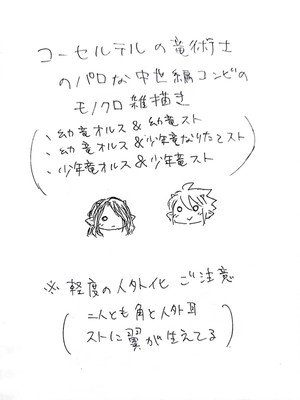 コーセルテルの竜術士
のパロな中世編コンビの
モノクロ雑描き
、幼竜オルス&幼竜スト
、幼竜オルス&少年竜なりたてスト
、少年竜オルス&少年竜スト
※軽度の人外化ご注意
二人とも角と人外耳
ストに翼が生えてる